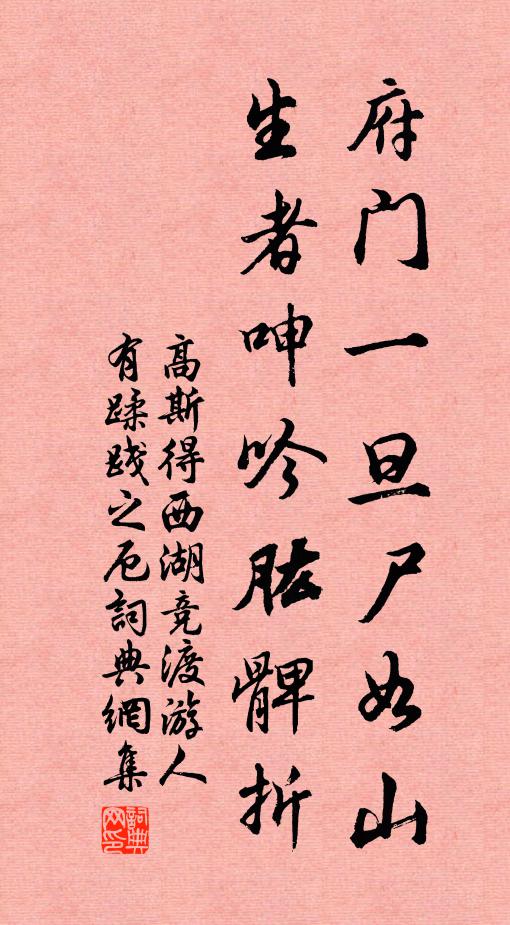 府门一旦尸如山
生者呻吟肱髀折
高斯得西湖竞渡游人
有蹂践之厄詞典網集
詞典网印